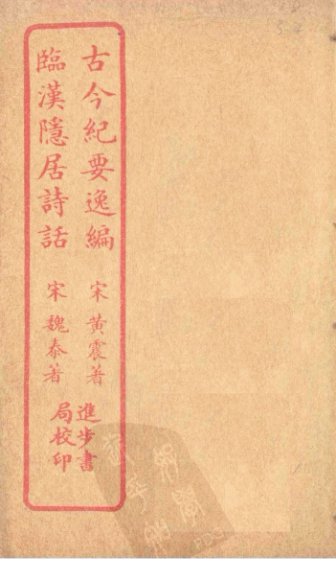 古今紀要逸編 宋 黃震著
臨漢隱居詩話 宋 魏泰著
進步書
局校印